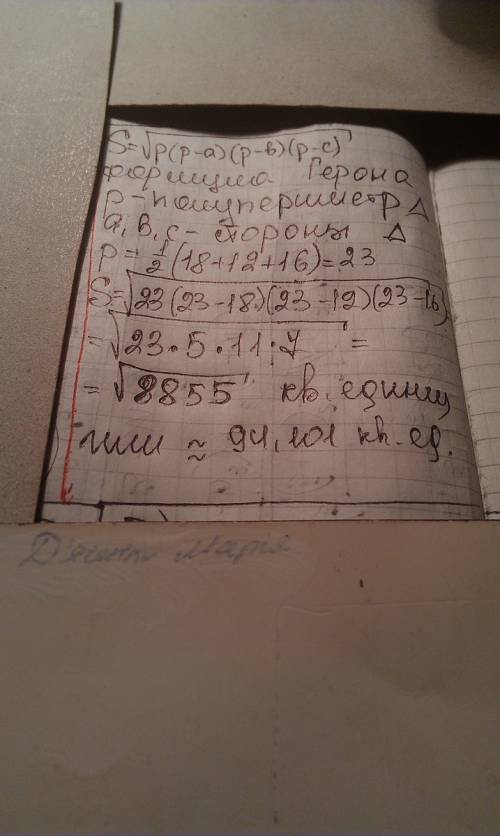 S=√p(p-a)(p-в)(p-c)
формула Герона
p-полупериметр Δ
a,в,c-стороны Δ
p=1/2(18+12+16)=23
S=√23(23-18)(23-12)(23-16)
=√23·5·11·7 =
=√8855 кв.единиц
или ≈ 94,101 кв.ед.
Марія